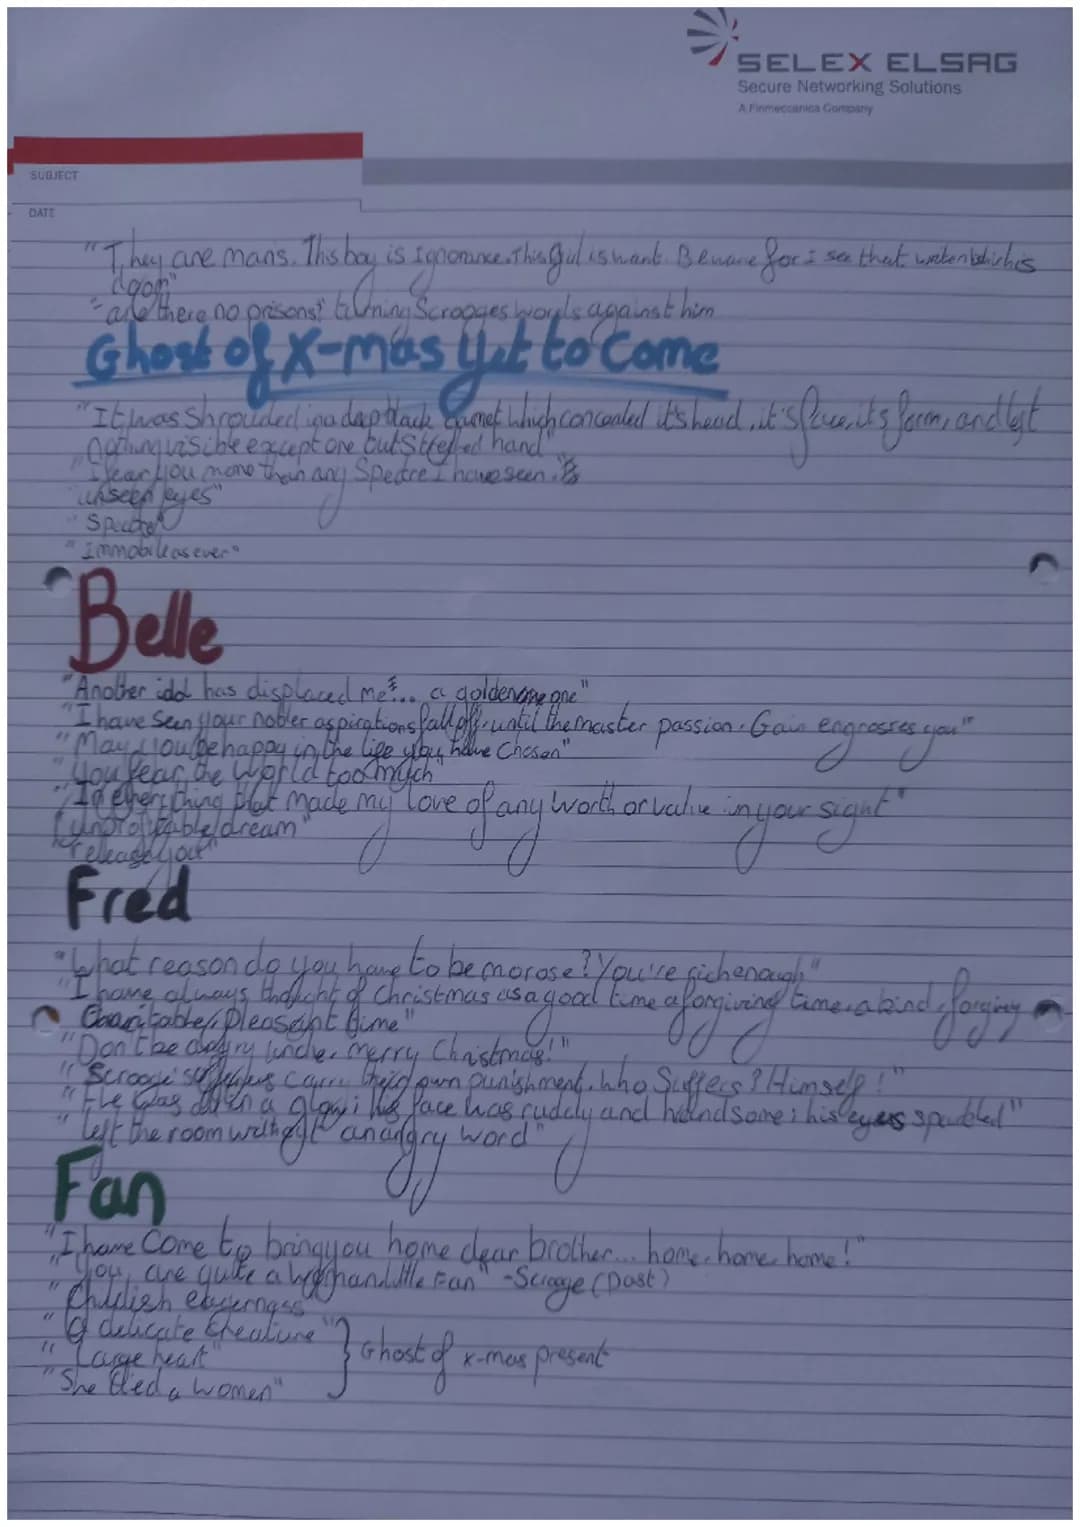 SELEX ELSAG
Secure Networking Solutions
A Finmeccanica Company
SUBJECT
DATE
"They are mans. This boy is Ignorance. This Girl is want. Beware for I see that written which is
doom"
"are there no prisons?" turning Scrooges words against him
Ghost of X-mas Yet to Come
"It was Shrouded in a deep black garnet which concealed it's head, it's face, its form, and left
nothing visible except one outstretched hand"
"I fear you more than any Spectre I have seen."
"unseen eyes"
"Spectre"
"Immobile as ever"
Belle
"Another idol has displaced me... a golden one"
"I have seen your nobler aspirations fall off, until the master passion, Gain engrosses you"
"May you be happy in the life you have Chosen"
"You fear the world too much"
"In everything that made my love of any worth or value in your sight"
"unprofitable dream"
"release you"
Fred
"What reason do you have to be morose? You're rich enough"
"I have always thought of Christmas as a good time a forgiving time, a kind, forgiving
Charitable, Pleasant time"
"Don't be angry uncle, merry Christmas!"
"Scrooge's carry their own punishment. Who Suffers? Himself!"
"He was all in a glow; his face was ruddy and handsome; his eyes sparkled"
"left the room without an angry word"
Fan
"I have Come to bring you home dear brother... home, home, home!"
"You are quite a woman little Fan" -Scrooge (Past)
"Childish eagerness"
"A delicate Creature"
"Large heart" } Ghost of x-mas present
"She died a women"